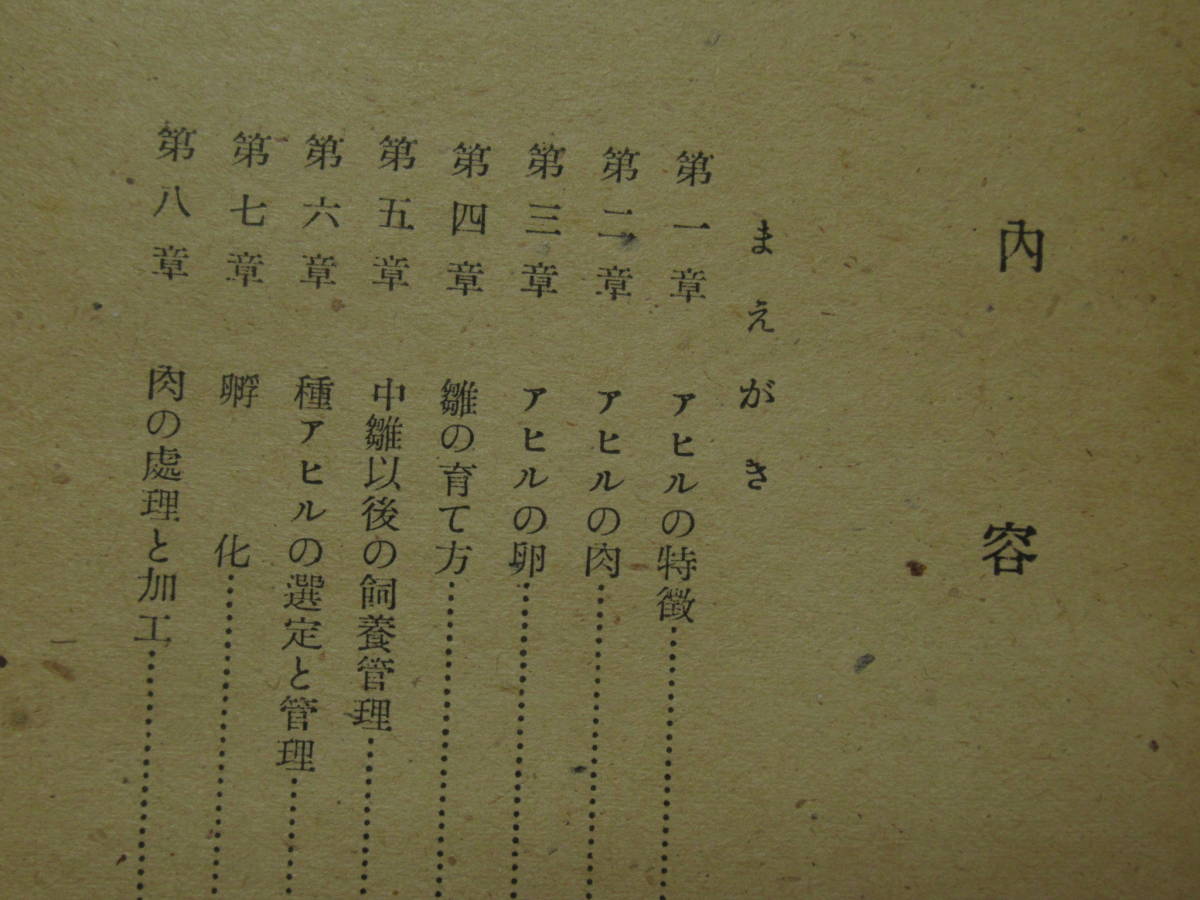 内容
まえがき
第一章 アヒルの特徴
第二章 アヒルの肉
第三章 アヒルの卵
第四章 雛の育て方
第五章 中雛以後の飼養管理
第六章 種アヒルの選定と管理
第七章 孵化
第八章 肉の處理と加工
一